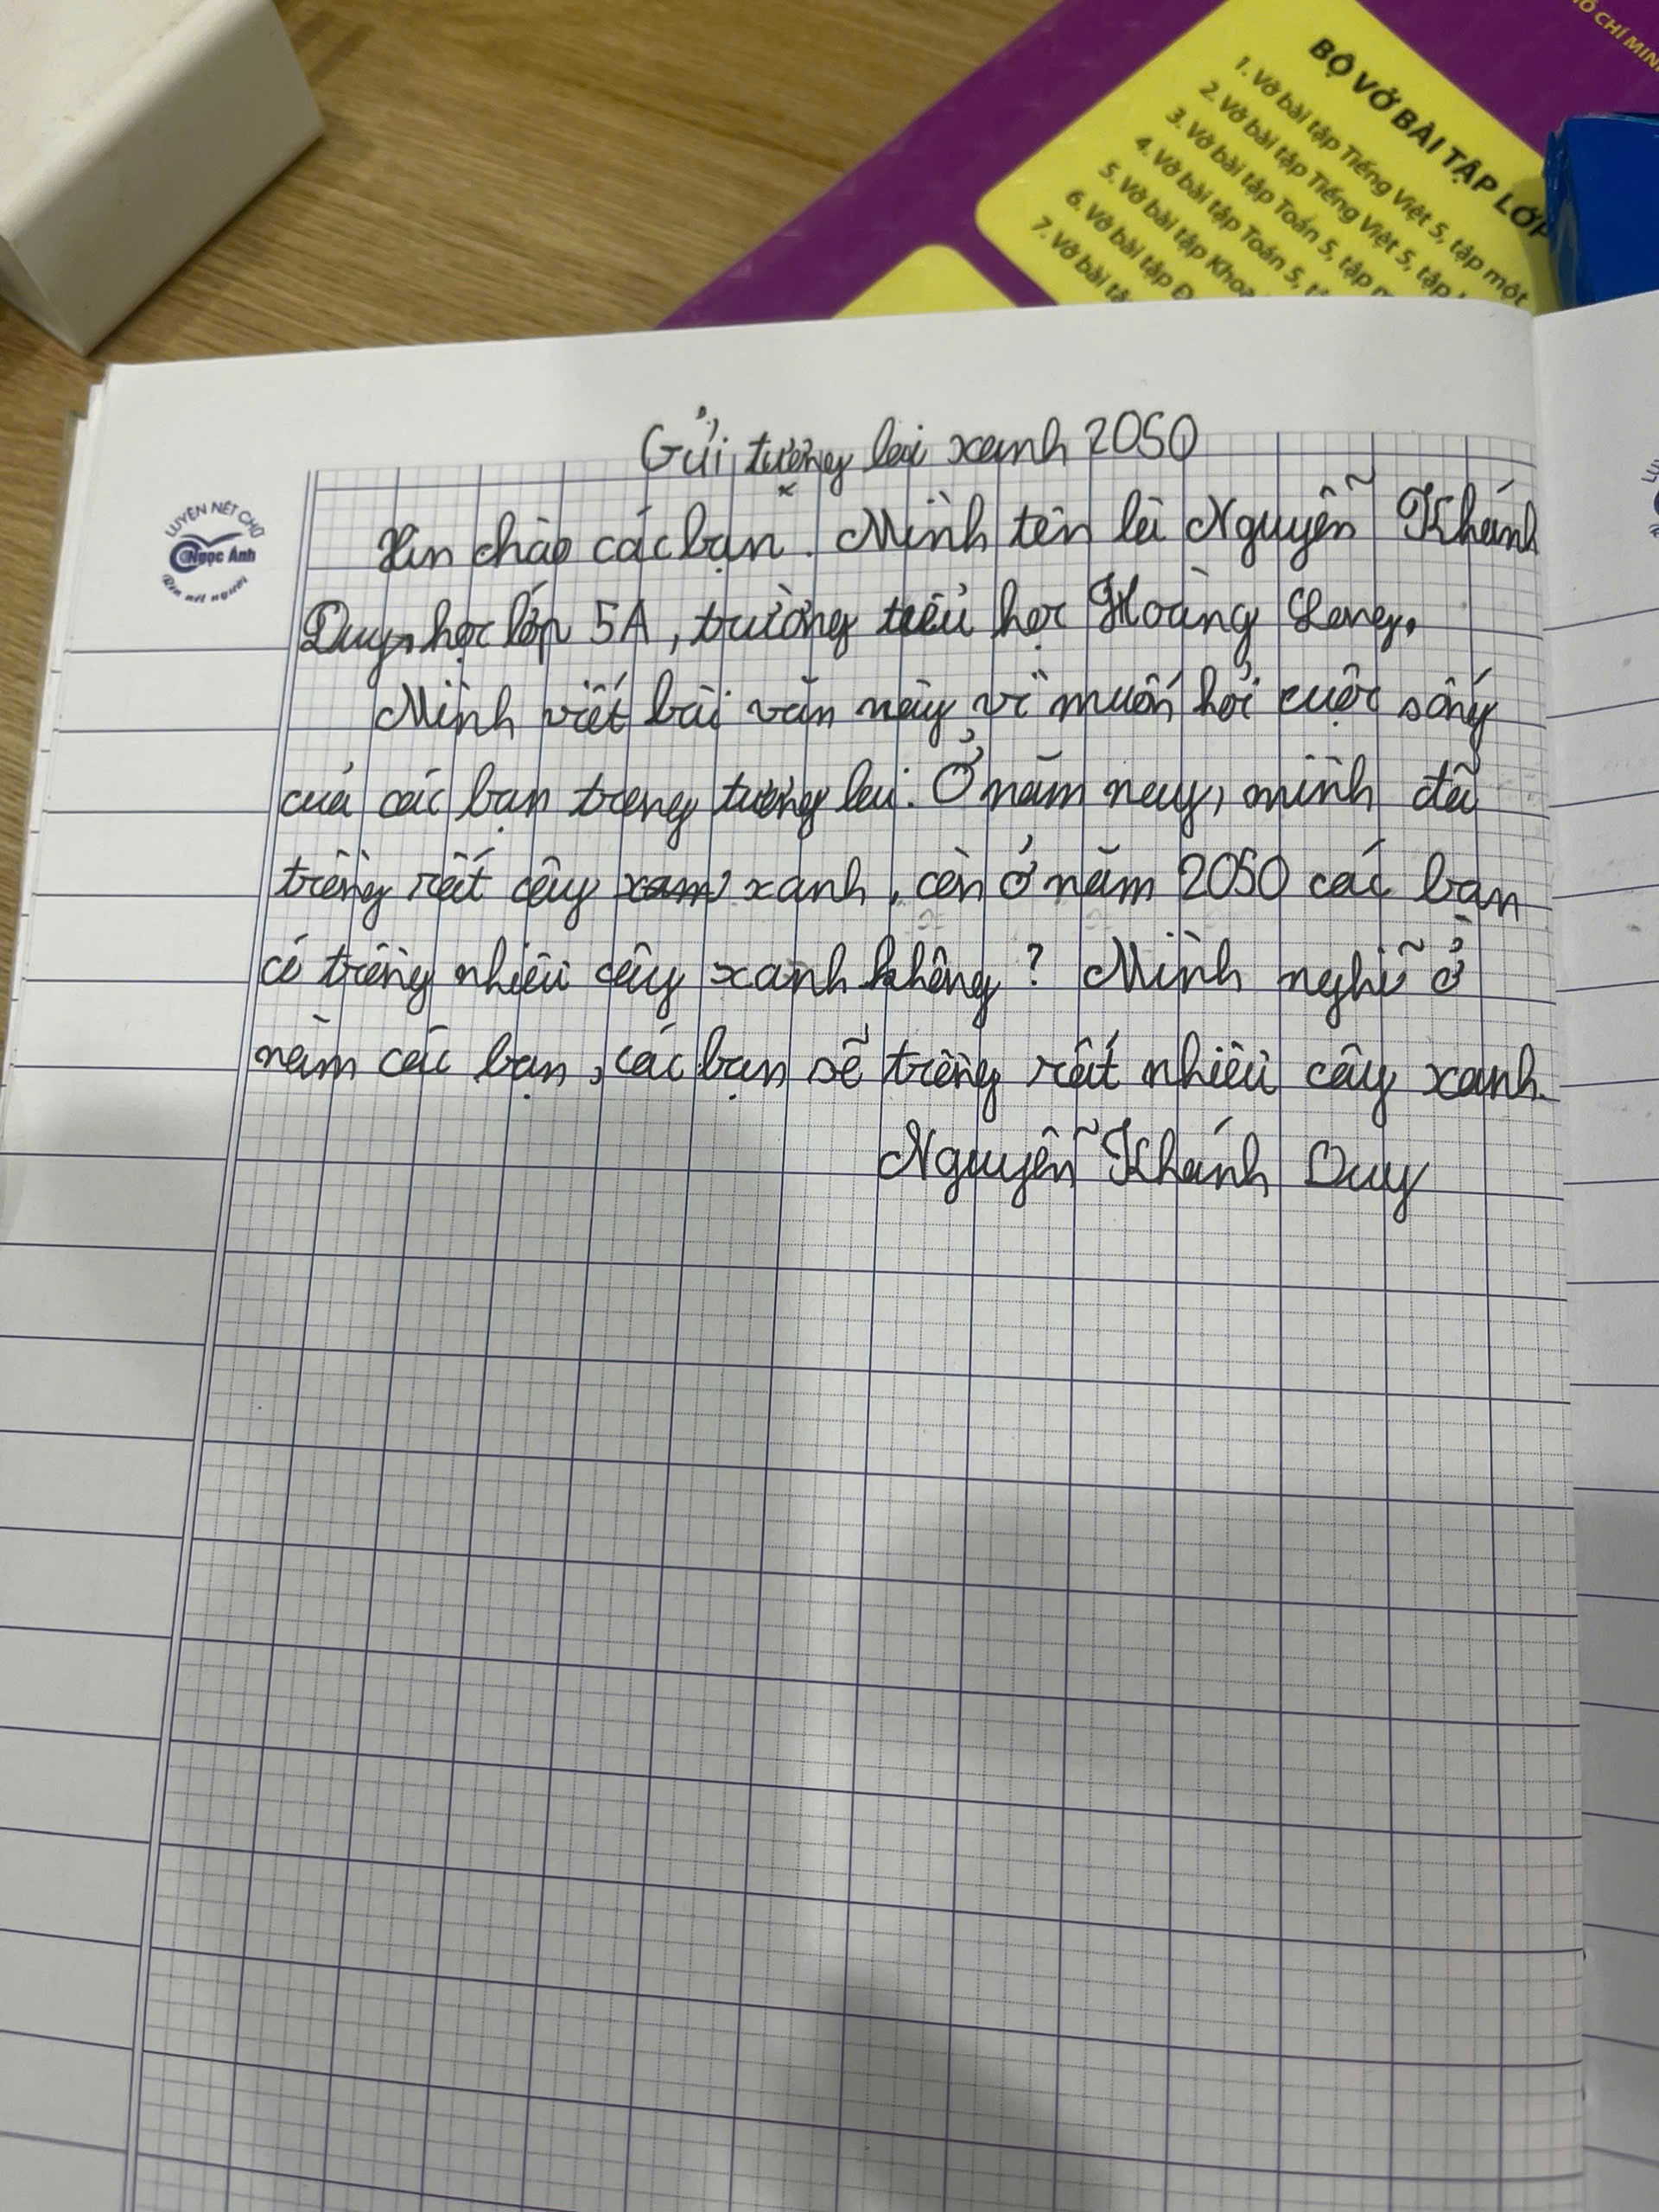 HỒ CHÍ MINH
BỘ VỞ BÀI TẬP LỚP
1. Vở bài tập Tiếng Việt 5, tập một
2. Vở bài tập Tiếng Việt 5, tập
3. Vở bài tập Toán 5, tập
4. Vở bài tập Toán 5,
5. Vở bài tập Khoa
6. Vở bài tập Đ
7. Vở bài tậ
Gửi tương lai xanh 2050
LUYỆN NÉT CHỮ
Ngọc Ánh
Rèn nết người
Xin chào các bạn. Mình tên là Nguyễn Khánh
Duy, học lớp 5A, trường tiểu học Hoàng Long.
Mình viết bài văn này vì muốn hỏi cuộc sống
của các bạn trong tương lai. Ở năm nay, mình đã
trồng rất cây xanh, còn ở năm 2050 các bạn
có trồng nhiều cây xanh không? Mình nghĩ ở
năm các bạn, các bạn sẽ trồng rất nhiều cây xanh.
Nguyễn Khánh Duy